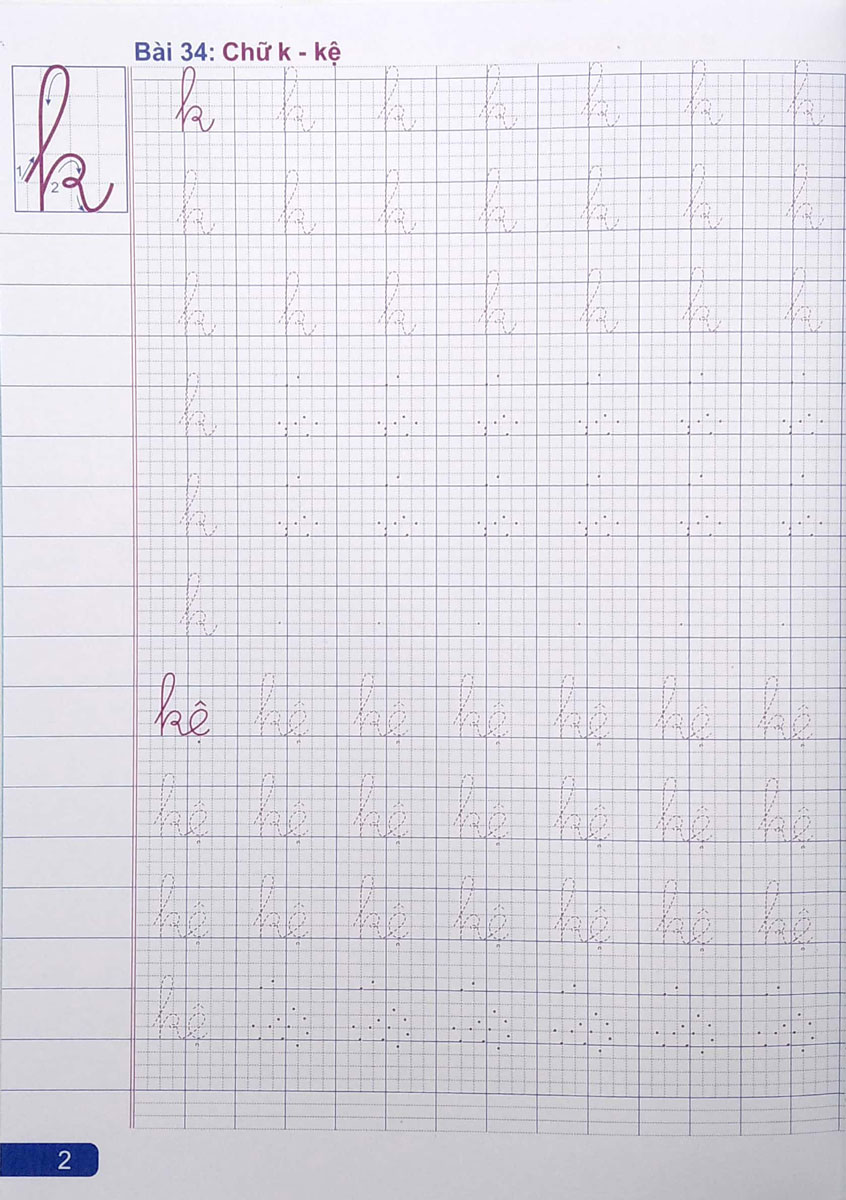 Bài 34: Chữ k - kệ
1 2
k k k k k k k
k k k k k k k
k k k k k k k
k
k
k
kệ kệ kệ kệ kệ kệ kệ
kệ kệ kệ kệ kệ kệ kệ
kệ kệ kệ kệ kệ kệ kệ
kệ
2